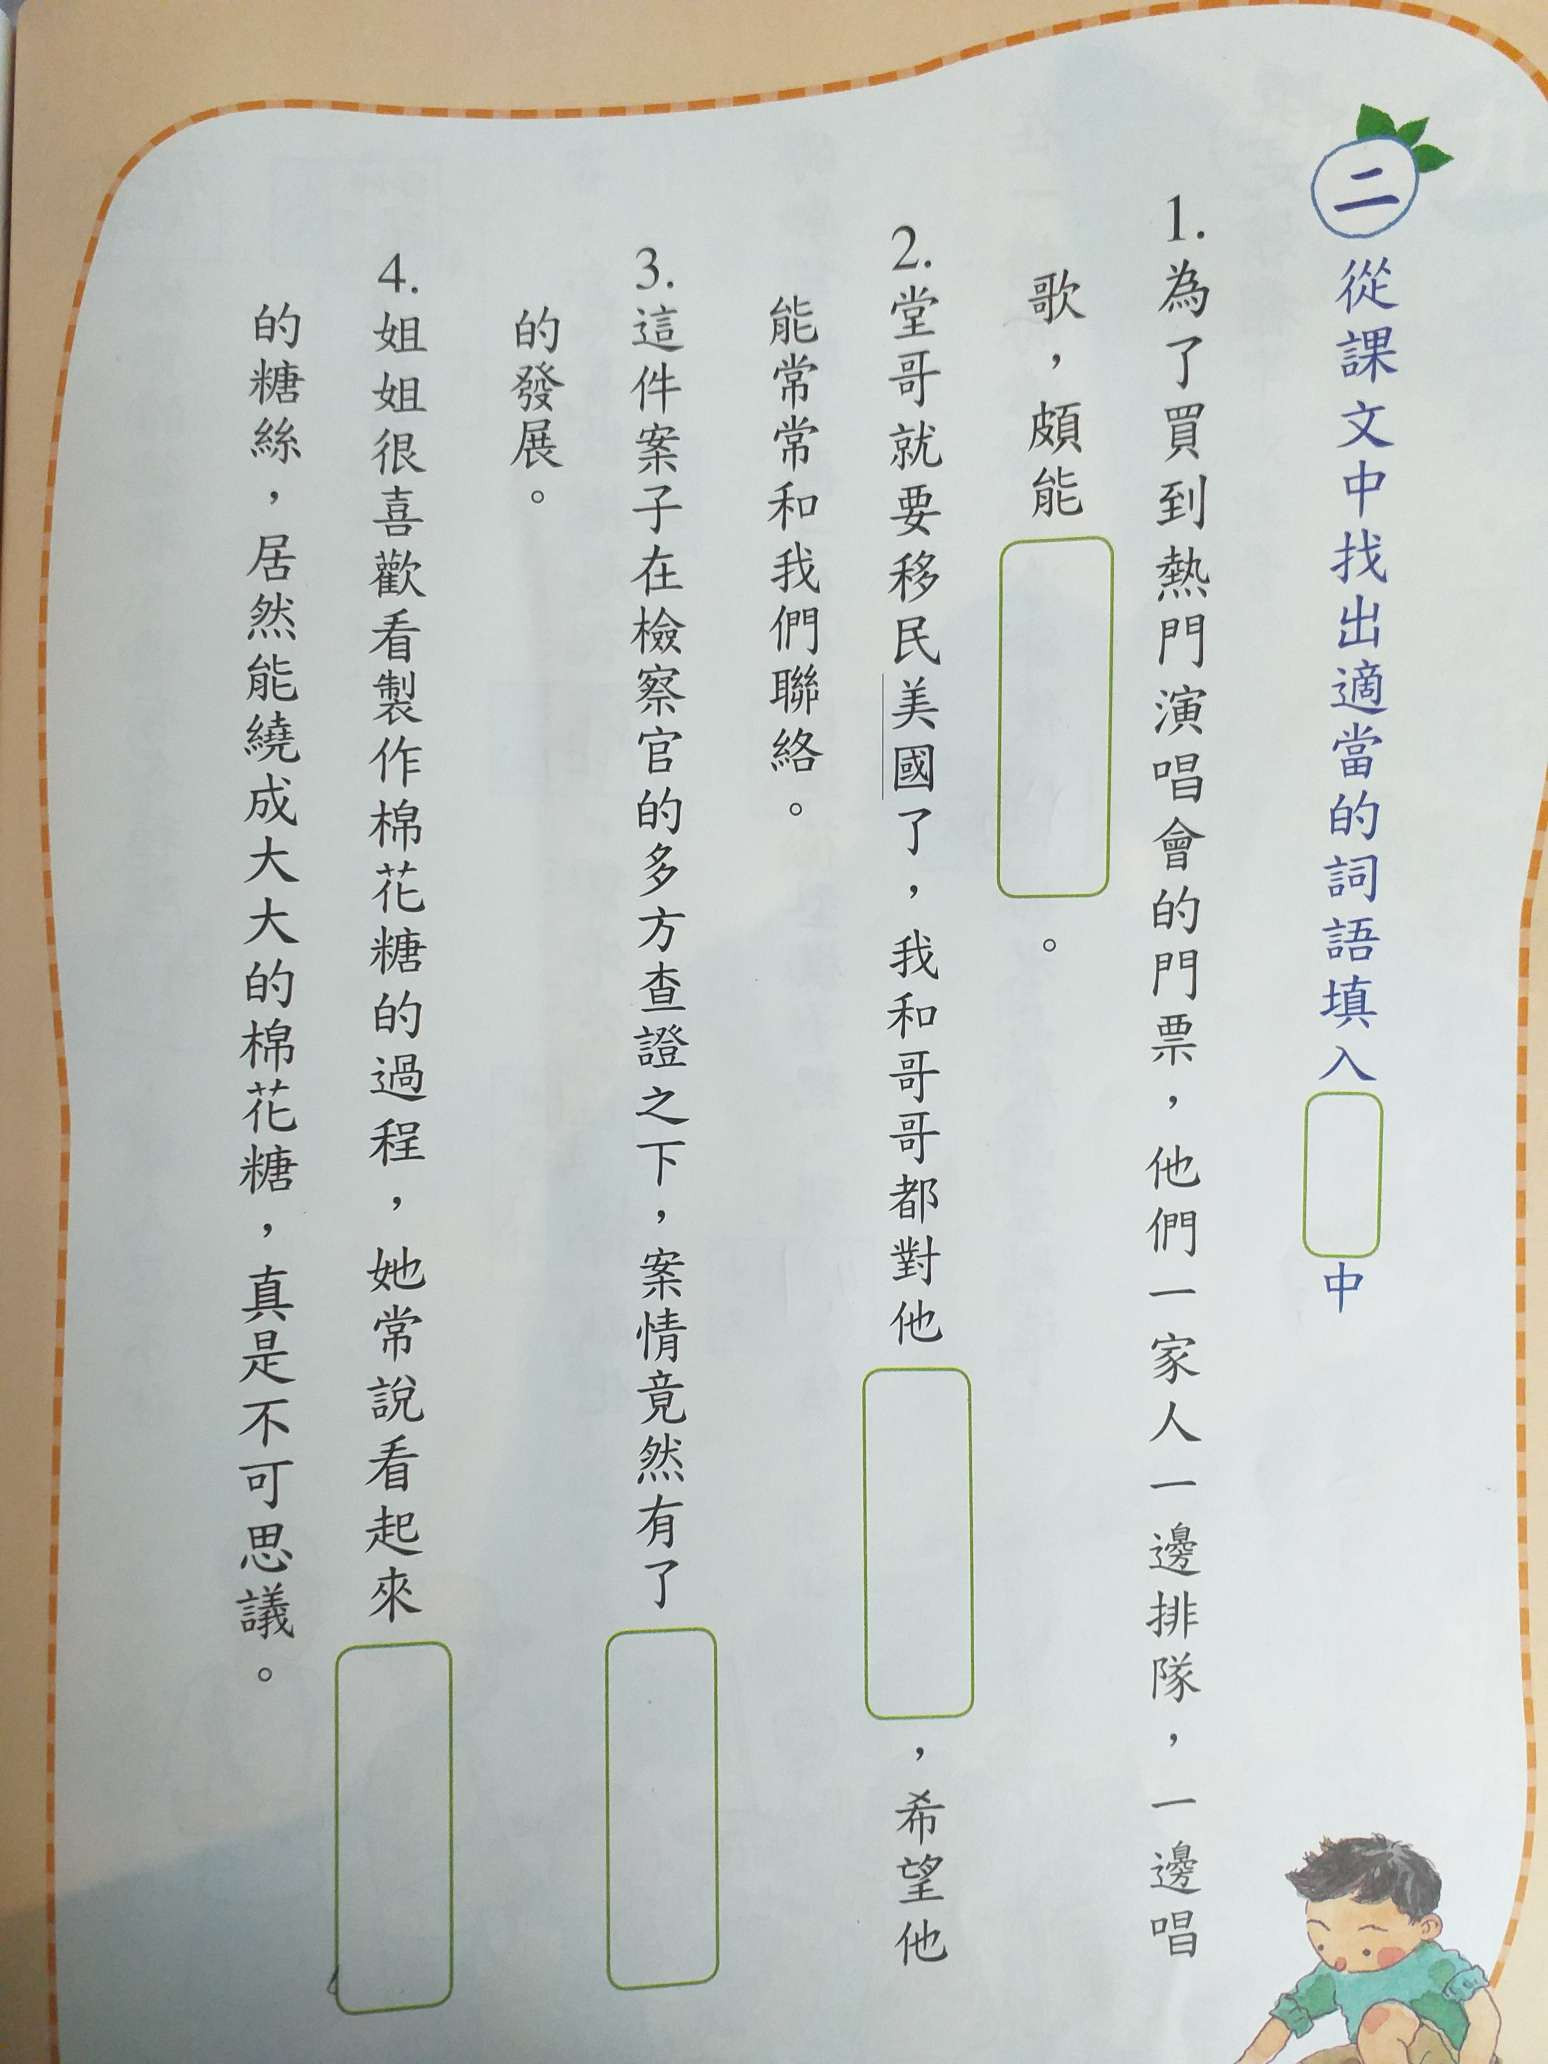 二 從課文中找出適當的詞語填入 中
1.為了買到熱門演唱會的門票，他們一家人一邊排隊，一邊唱
歌，頗能 。
2.堂哥就要移民美國了，我和哥哥都對他 ，希望他
能常常和我們聯絡。
3.這件案子在檢察官的多方查證之下，案情竟然有了
的發展。
4.姐姐很喜歡看製作棉花糖的過程，她常說看起來
的糖絲，居然能繞成大大的棉花糖，真是不可思議。